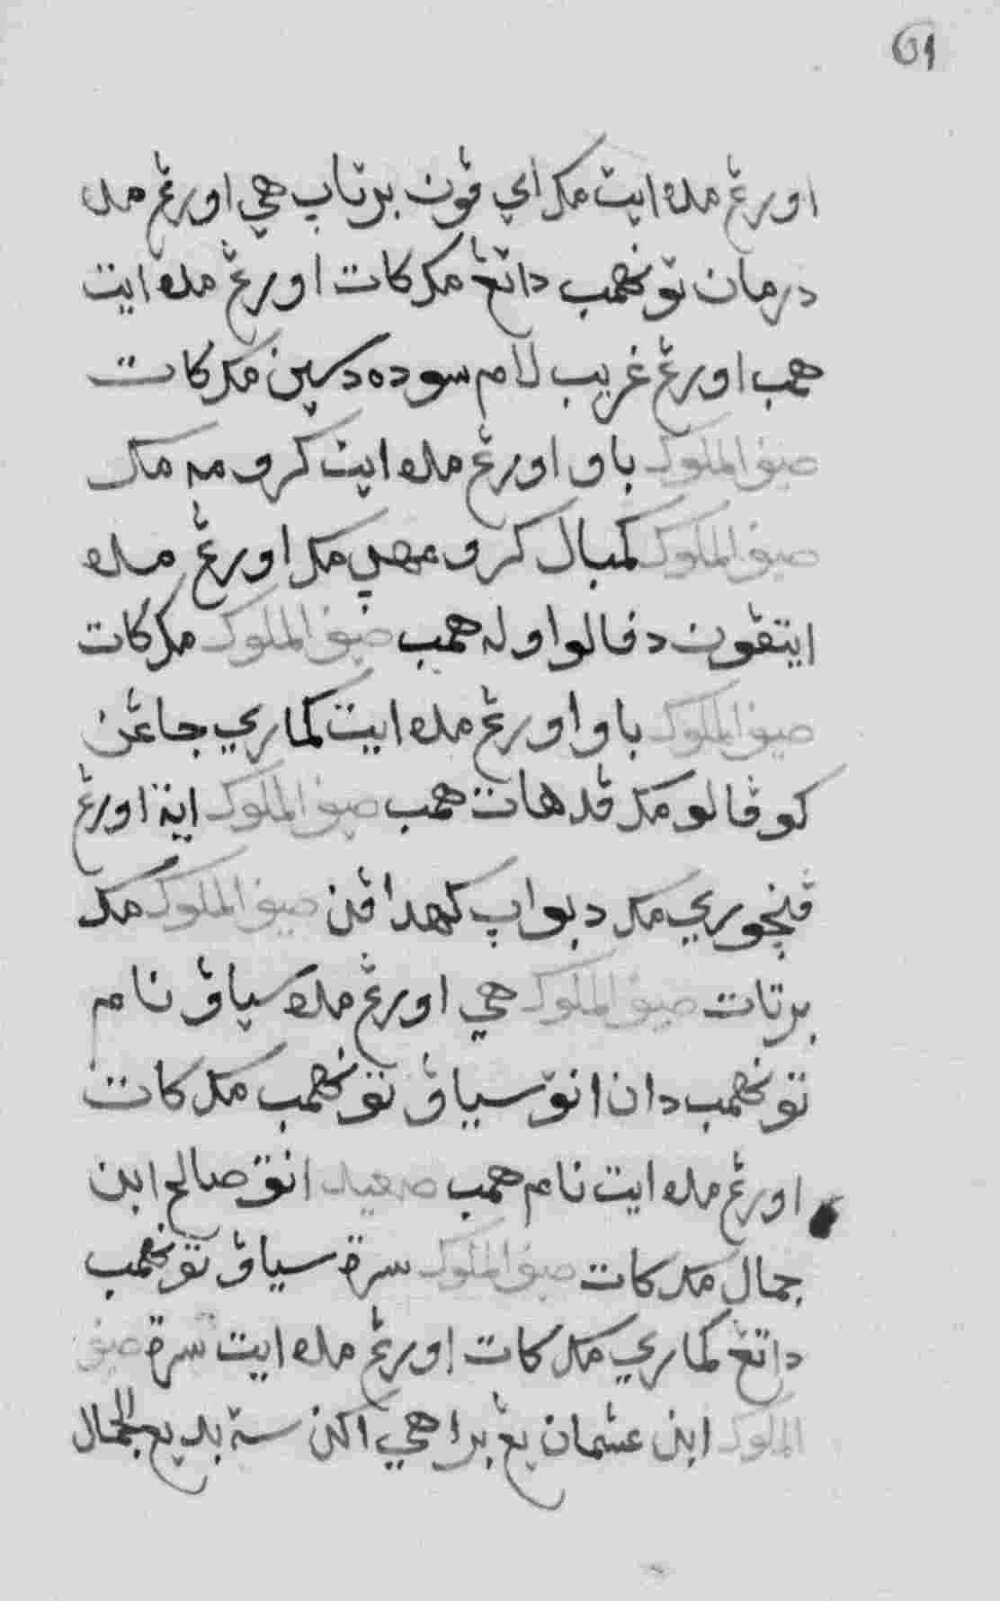 61
اورڠ مده ايت مک اي ڤون برتاپ هي اورڠ مد
درمان تو نهمب داتڠ مک کات اورڠ مده ايت
همب اورڠ غريب لام سوده دسين مک کات
صيف الملوک باوا اورڠ مده ايت کرومه مک
صيف الملوک کمبال کرومهپ مک اورڠ مده
ايتڤون دفالو اوله همب صيف الملوک مک کات
صيف الملوک باوا اورڠ مده ايت کماري جاڠن
کو ڤالو مک ڤد هات همب صيف الملوک اية اورڠ
ڤنچوري مک دبواپ کهداڤن صيف الملوک مک
برتات صيف الملوک هي اورڠ مده سياڤ نام
تو نهمب دان انق سياڤ تو نهمب مک کات
اورڠ مده ايت نام همب صعيد انق صالح ابن
جمال مک کات صيف الملوک سرة سياڤ تو نهمب
داتڠ کماري مک کات اورڠ مده ايت سرة صيف
الملوک ابن عثمان يڠ براهي اکن ستة بديع الجمال